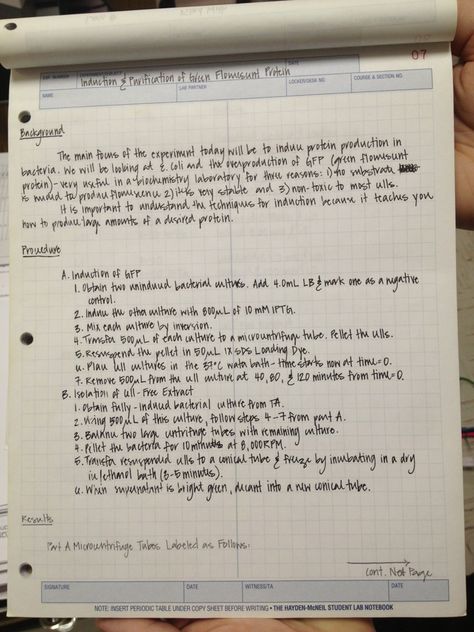 07
EXP. NUMBER EXPERIMENT/SUBJECT
Induction & Purification of Green Flourescent Protein
NAME LAB PARTNER LOCKER/DESK NO. COURSE & SECTION NO.
Background
The main focus of the experiment today will be to induce protein production in
bacteria. We will be looking at E. coli and the overproduction of GFP (green flourescent
protein) - very useful in a biochemistry laboratory for three reasons: 1) no substrate
is needed to produce flourescence 2) it is very stable and 3) non-toxic to most cells.
It is important to understand the techniques for induction because it teaches you
how to produce large amounts of a desired protein.
Procedure
A. Induction of GFP
1. Obtain two uninduced bacterial cultures. Add 4.0mL LB & mark one as a negative
control.
2. Induce the other culture with 800µL of 10 mM IPTG.
3. Mix each culture by inversion.
4. Transfer 500µL of each culture to a microcentrifuge tube. Pellet the cells.
5. Resuspend the pellet in 50µL 1X SDS Loading Dye.
6. Place cell cultures in the 37°C water bath - time starts now at time=0.
7. Remove 500µL from the cell culture at 40, 80, & 120 minutes from time=0.
B. Isolation of Cell-Free Extract
1. Obtain fully-induced bacterial culture from TA.
2. Using 500µL of this culture, follow steps 4-7 from part A.
3. Balance two large centrifuge tubes with remaining culture.
4. Pellet the bacteria for 10 minutes at 8,000RPM.
5. Transfer resuspended cells to a conical tube & freeze by incubating in a dry
ice/ethanol bath (3-5 minutes).
6. When supernatant is bright green, decant into a new conical tube.
Results
Part A Microcentrifuge Tubes Labeled as Follows:
Cont. Next Page
SIGNATURE DATE WITNESS/TA DATE
NOTE: INSERT PERIODIC TABLE UNDER COPY SHEET BEFORE WRITING • THE HAYDEN-McNEIL STUDENT LAB NOTEBOOK